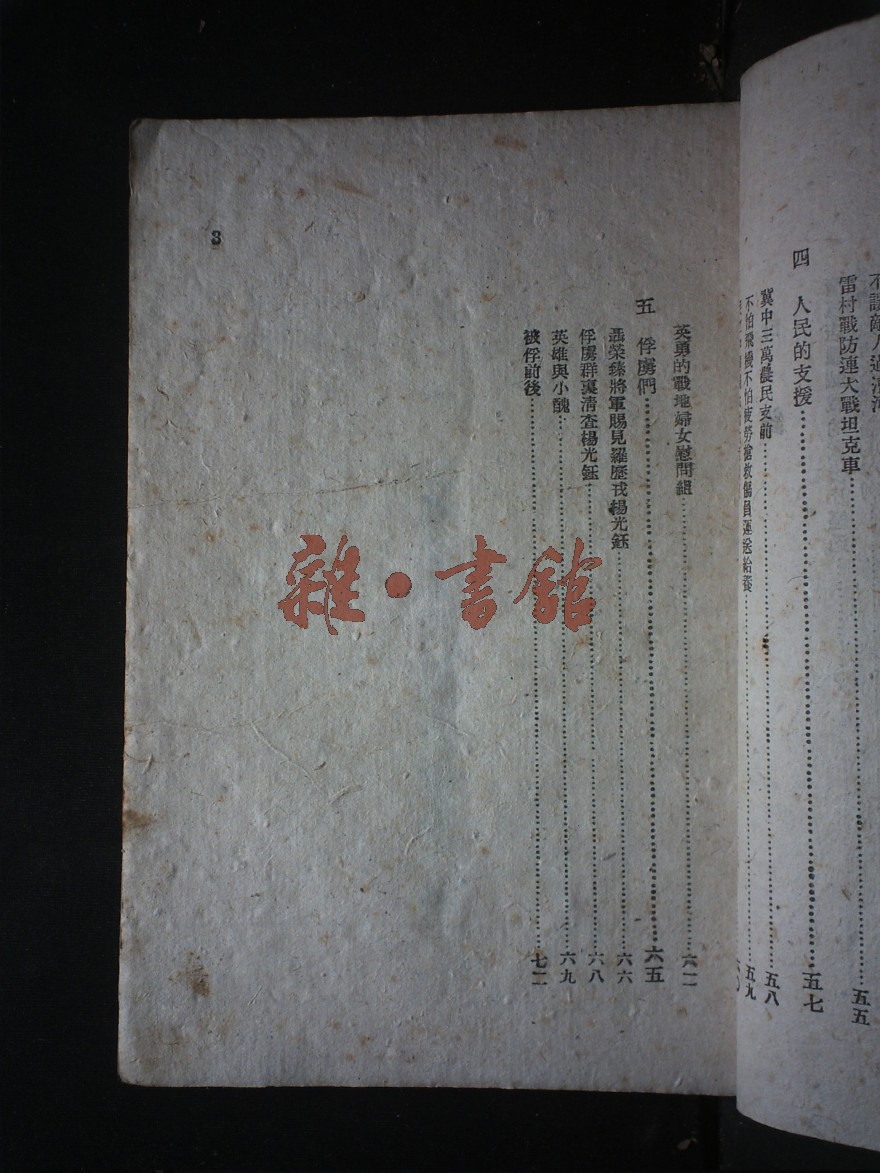 雷村戰防連大戰坦克車……五五
四 人民的支援……五七
冀中三萬農民支前……五八
不怕飛機不怕疲勞搶救傷員運送給養……五九
英勇的戰地婦女慰問組……六二
五 俘虜們……六五
聶榮臻將軍賜見羅歷戎楊光鈺……六六
俘虜群裏清查楊光鈺……六八
英雄與小醜……六九
被俘前後……七二
3
雜·書館